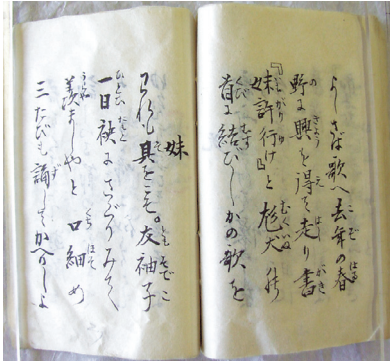 よしさば歌へ去年の春
野に興を得て走り書
『妹許行け』と尨犬の
首に結びしかの歌を
妹
われも其をこそ。友袖子
一日袂にさぐりみて
羨ましやと口細め
三たびも誦してかへりしよ